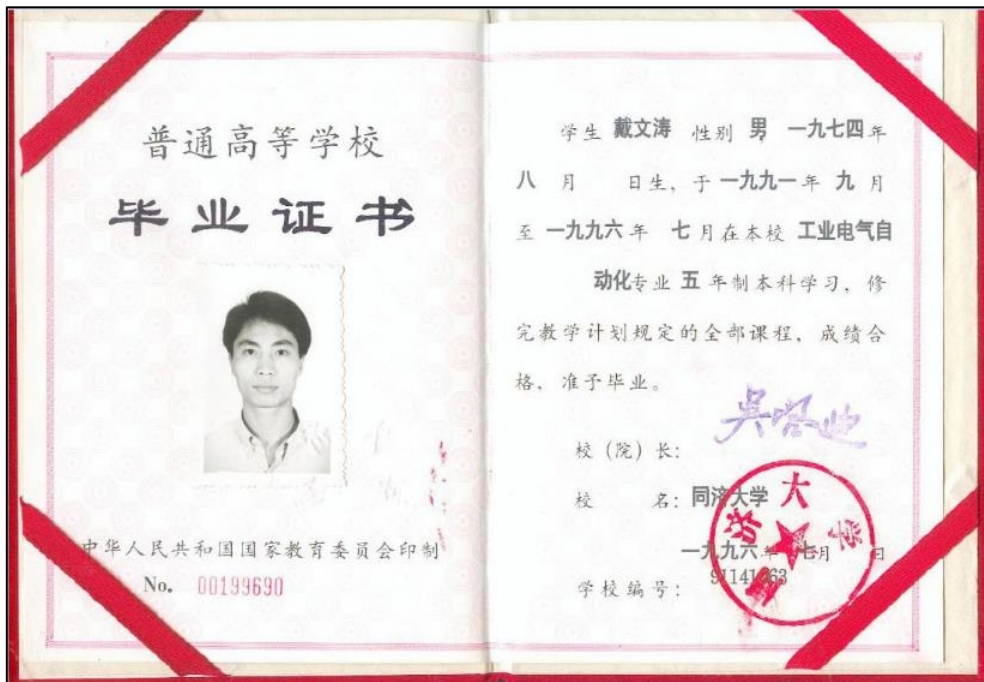 普通高等学校
毕业证书
中华人民共和国国家教育委员会印制
No. 00199690
学生 戴文涛 性别 男 一九七四年
八 月 日生，于 一九九一 年 九 月
至 一九九六 年 七 月在本校 工业电气自
动化专业 五 年制本科学习，修
完教学计划规定的全部课程，成绩合
格，准予毕业。
校（院）长：
吴启迪
校 名：同济大学
一九九六 年 七月 日
学校编号：
同济大学